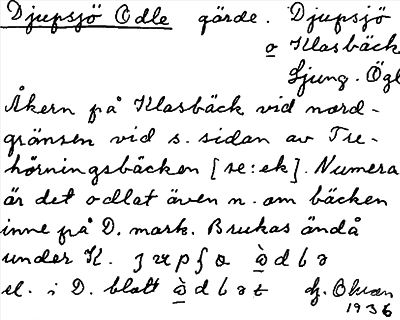 Djupsjö Odle gärde. Djupsjö
o Klasbäck
Ljung. Ögl
Åkern på Klasbäck vid nord-
gränsen vid s. sidan av Tre-
hörningsbäcken [se: ek]. Numera
är det odlat även n. om bäcken
inne på D. mark. Brukas ändå
under K.
el. i D. blott
1936